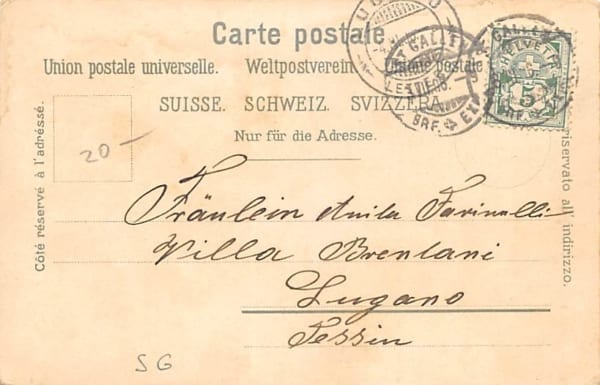 Carte postale.
Union postale universelle. Weltpostverein. Unione postale
SUISSE. SCHWEIZ. SVIZZERA.
Nur für die Adresse.
Côté réservé à l'adresse.
riservato all' indirizzo.
HELVETIA
5
GALLEN
BRF.
20-
Fräulein Anita Farinelli
Villa Brentani
Lugano
Tessin
SG